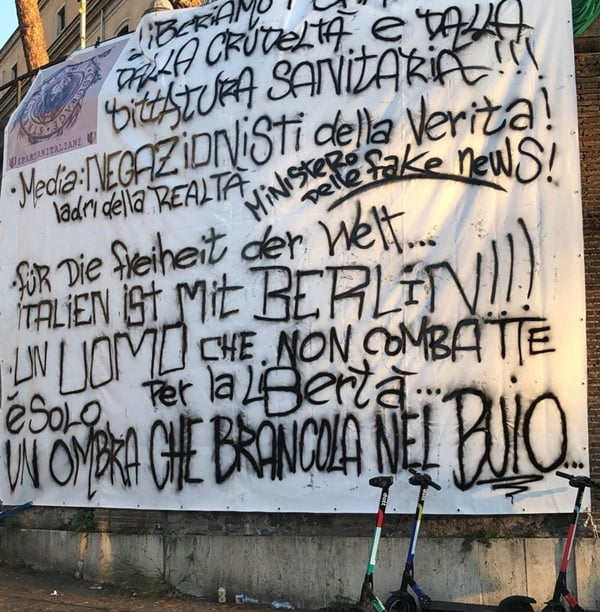 LIBERIAMO
DALLA CRUDELTÀ E DALLA
DITTATURA SANITARIA!!!
SPARTANITALIANI
•Media: NEGAZIONISTI della Verita!
ladri della REALTÀ
MINISTERO
delle fake news!
•FÜR Die freiheit der Welt...
ITALIEN IST Mit BERLiN!!!
•UN UOMO CHE NON COMBATTE
Per la LiBertà...
è SOLO
UN OMBRA CHE BRANCOLA NEL BUIO...
dott